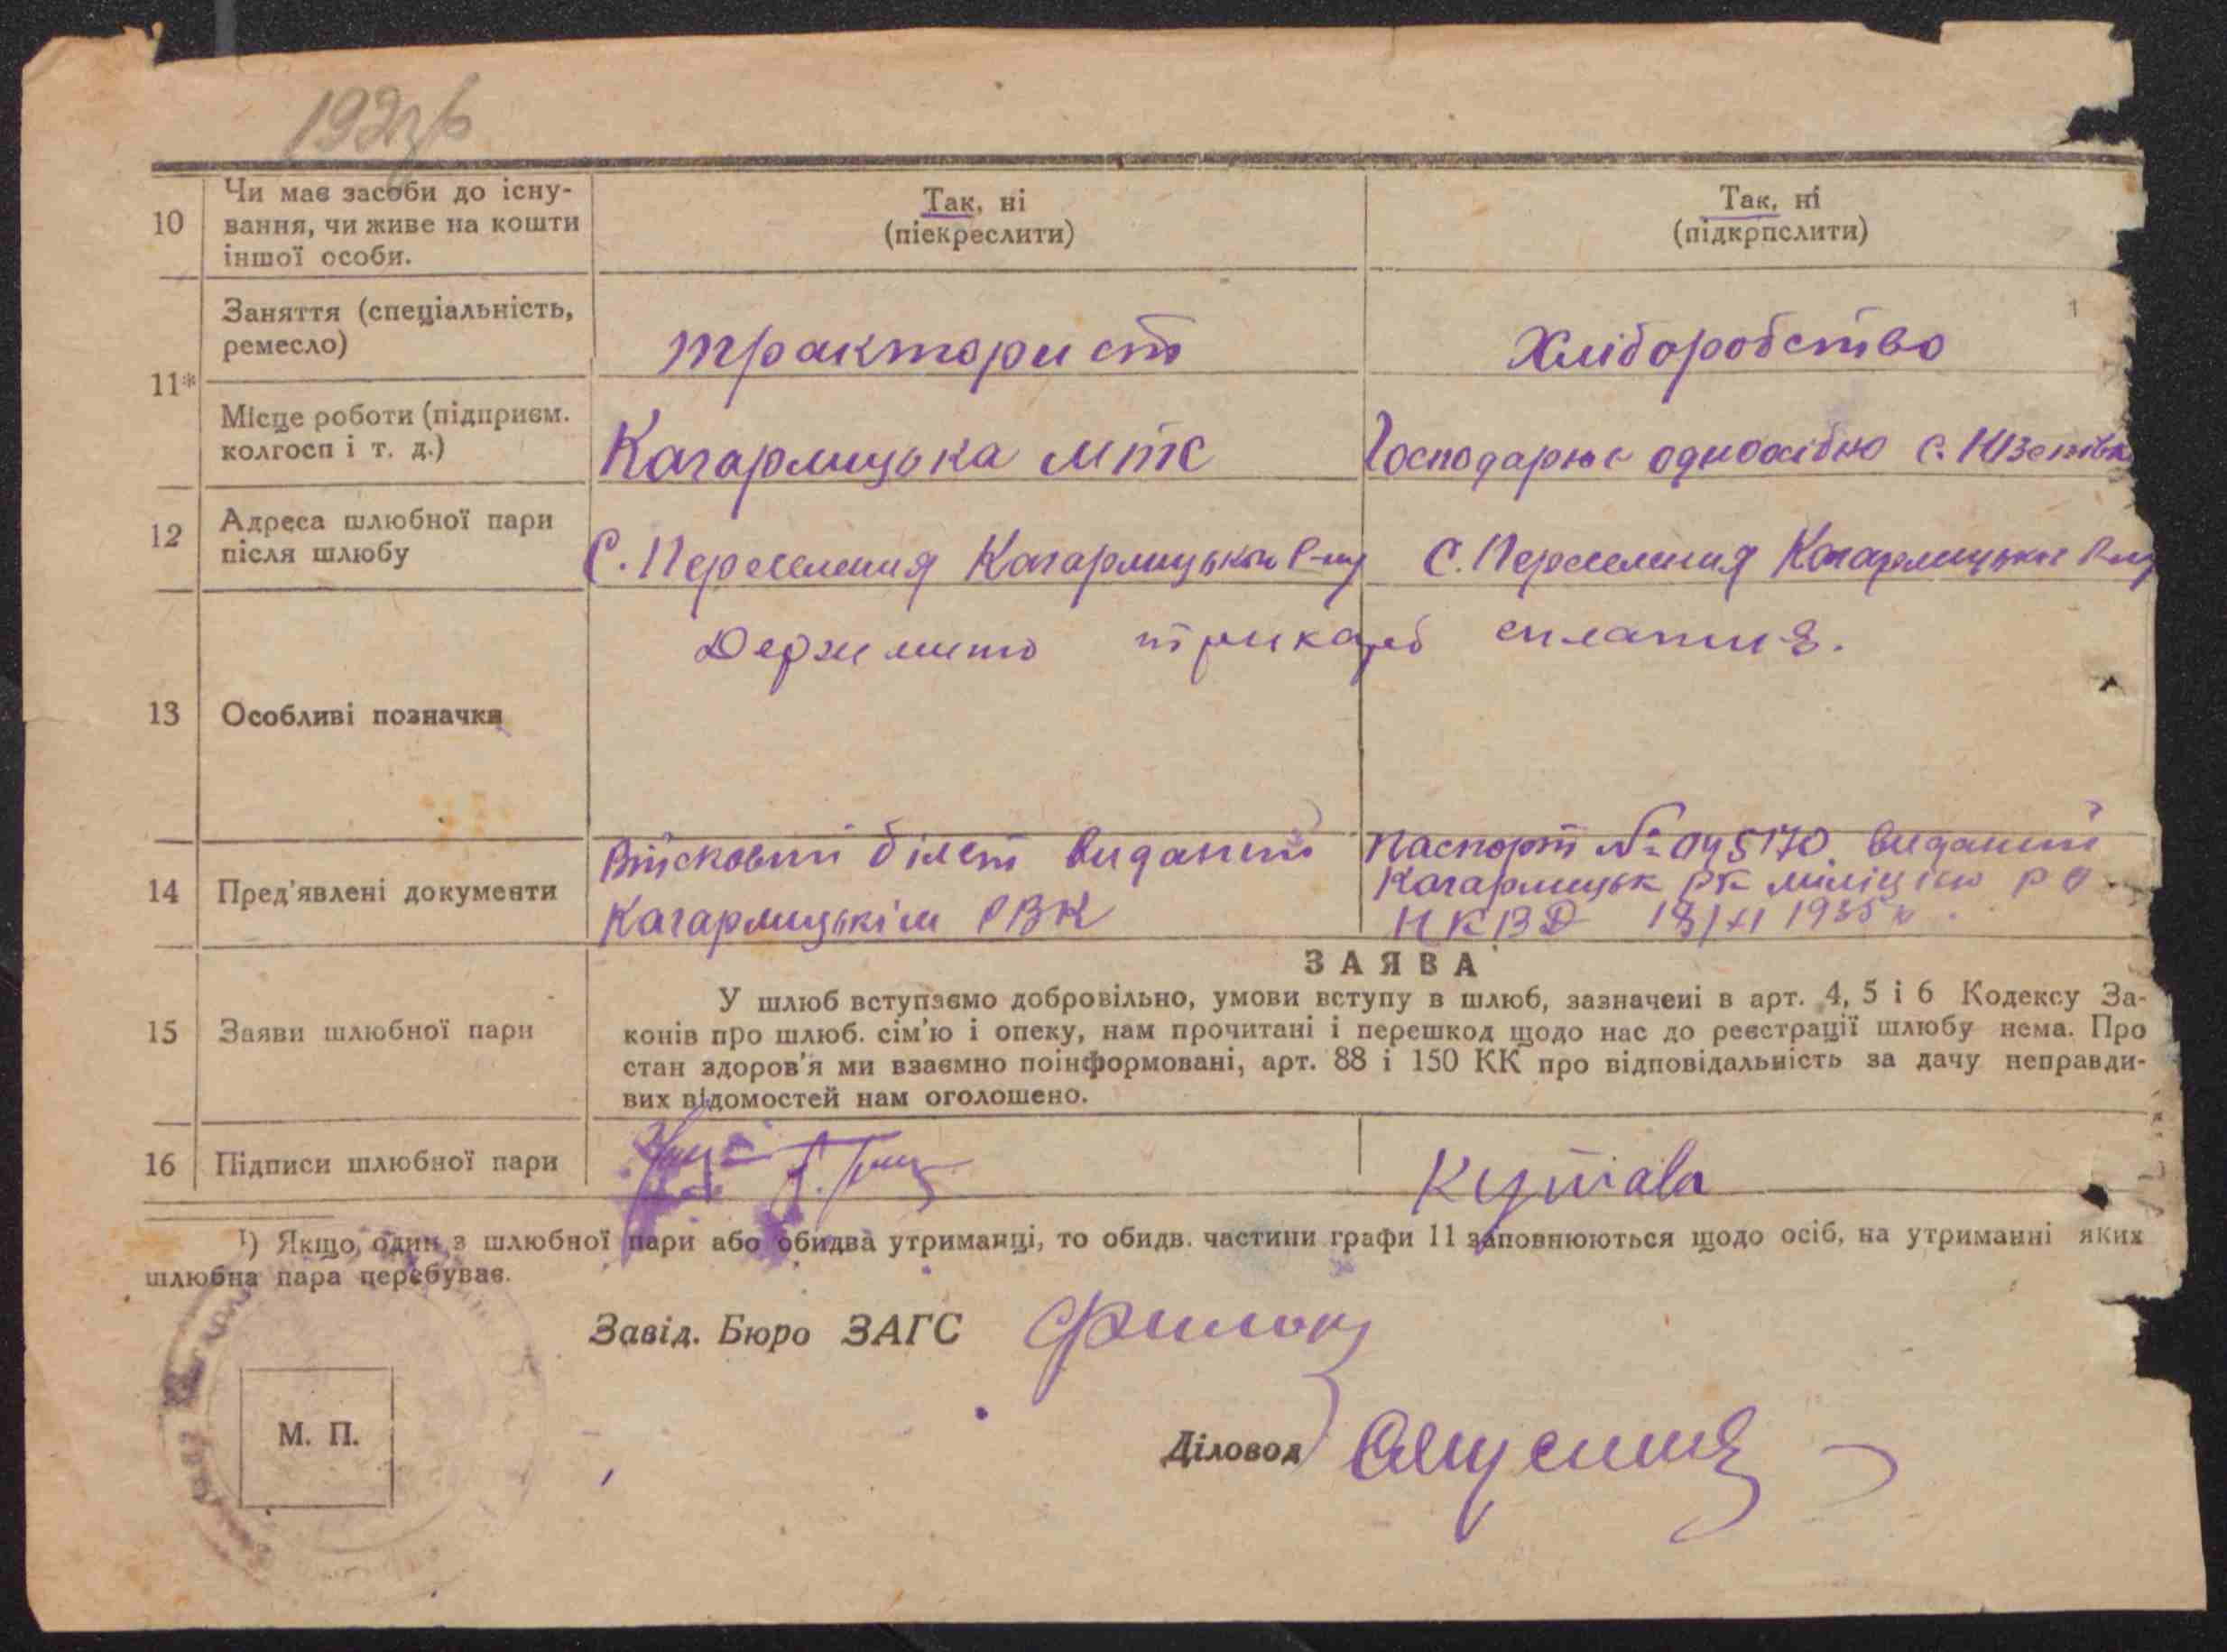 192зв
10
Чи має засоби до існу-
вання, чи живе на кошти
іншої особи.
Так, ні
(піекреслити)
Так, ні
(підкрпслити)
11*
Заняття (спеціальність,
ремесло)
тракторист
Хліборобство
Місце роботи (підприєм.
колгосп і т. д.)
Кагарлицька мтс
Господарює одноосібно с.
12
Адреса шлюбної пари
після шлюбу
С. Переселення Кагарлицьког Р-ну
С. Переселення Кагарлицьког Р-ну
13
Особливі позначки
Держмито три карб сплатив.
14
Пред'явлені документи
Війсковий білет виданий
Кагарлицькім РВК
Паспорт № 045170. виданий
Кагарлицьк РК міліцією РО
НКВД 1935 р.
15
Заяви шлюбної пари
ЗАЯВА
У шлюб вступаємо добровільно, умови вступу в шлюб, зазначені в арт. 4, 5 і 6 Кодексу За-
конів про шлюб. сім'ю і опеку, нам прочитані і перешкод щодо нас до реєстрації шлюбу нема. Про
стан здоров'я ми взаємно поінформовані, арт. 88 і 150 КК про відповідальність за дачу неправди-
вих відомостей нам оголошено.
16
Підписи шлюбної пари
¹) Якщо, один з шлюбної пари або обидва утриманці, то обидв. частини графи 11 заповнюються щодо осіб, на утриманні яких
шлюбна пара перебуває.
Завід. Бюро ЗАГС
Діловод
М. П.